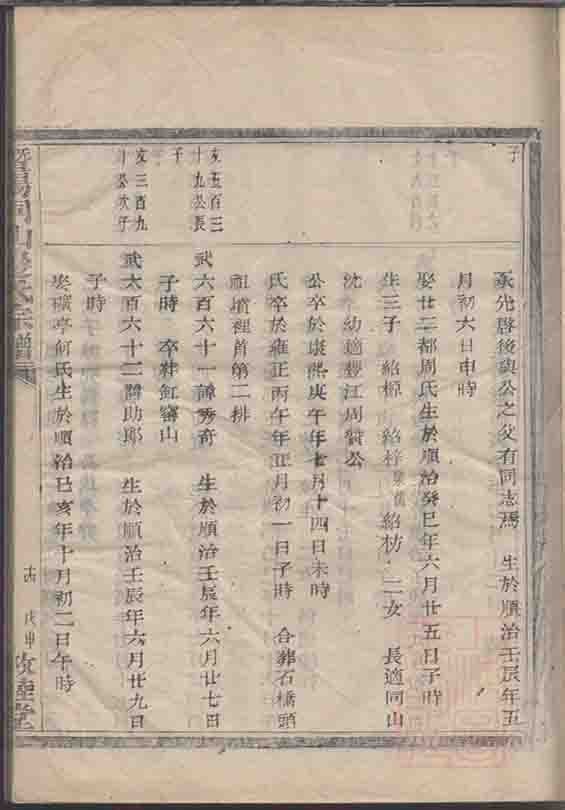 子
承先啓後與公之父有同志焉 生於順治壬辰年五
月初六日申時
娶廿二都周氏生於順治癸巳年六月廿五日子時
生三子 紹楨 紹梓 紹枋 二女 長適同山
沈 幼適豐江周贊公
公卒於康熙庚午年七月十四日未時
氏卒於雍正丙午年正月初一日子時 合葬石橋頭
祖墳裡首第二排
亥五百三
十九公長
子
武六百六十一諱秀奇 生於順治壬辰年六月廿七日
子時 卒葬缸窰山
亥三百九
公次子
武六百六十二諱助郎 生於順治壬辰年六月廿九日
子時
娶礦亭何氏生於順治己亥年十月初二日午時
暨陽同山氏宗譜
戊申
敦睦堂